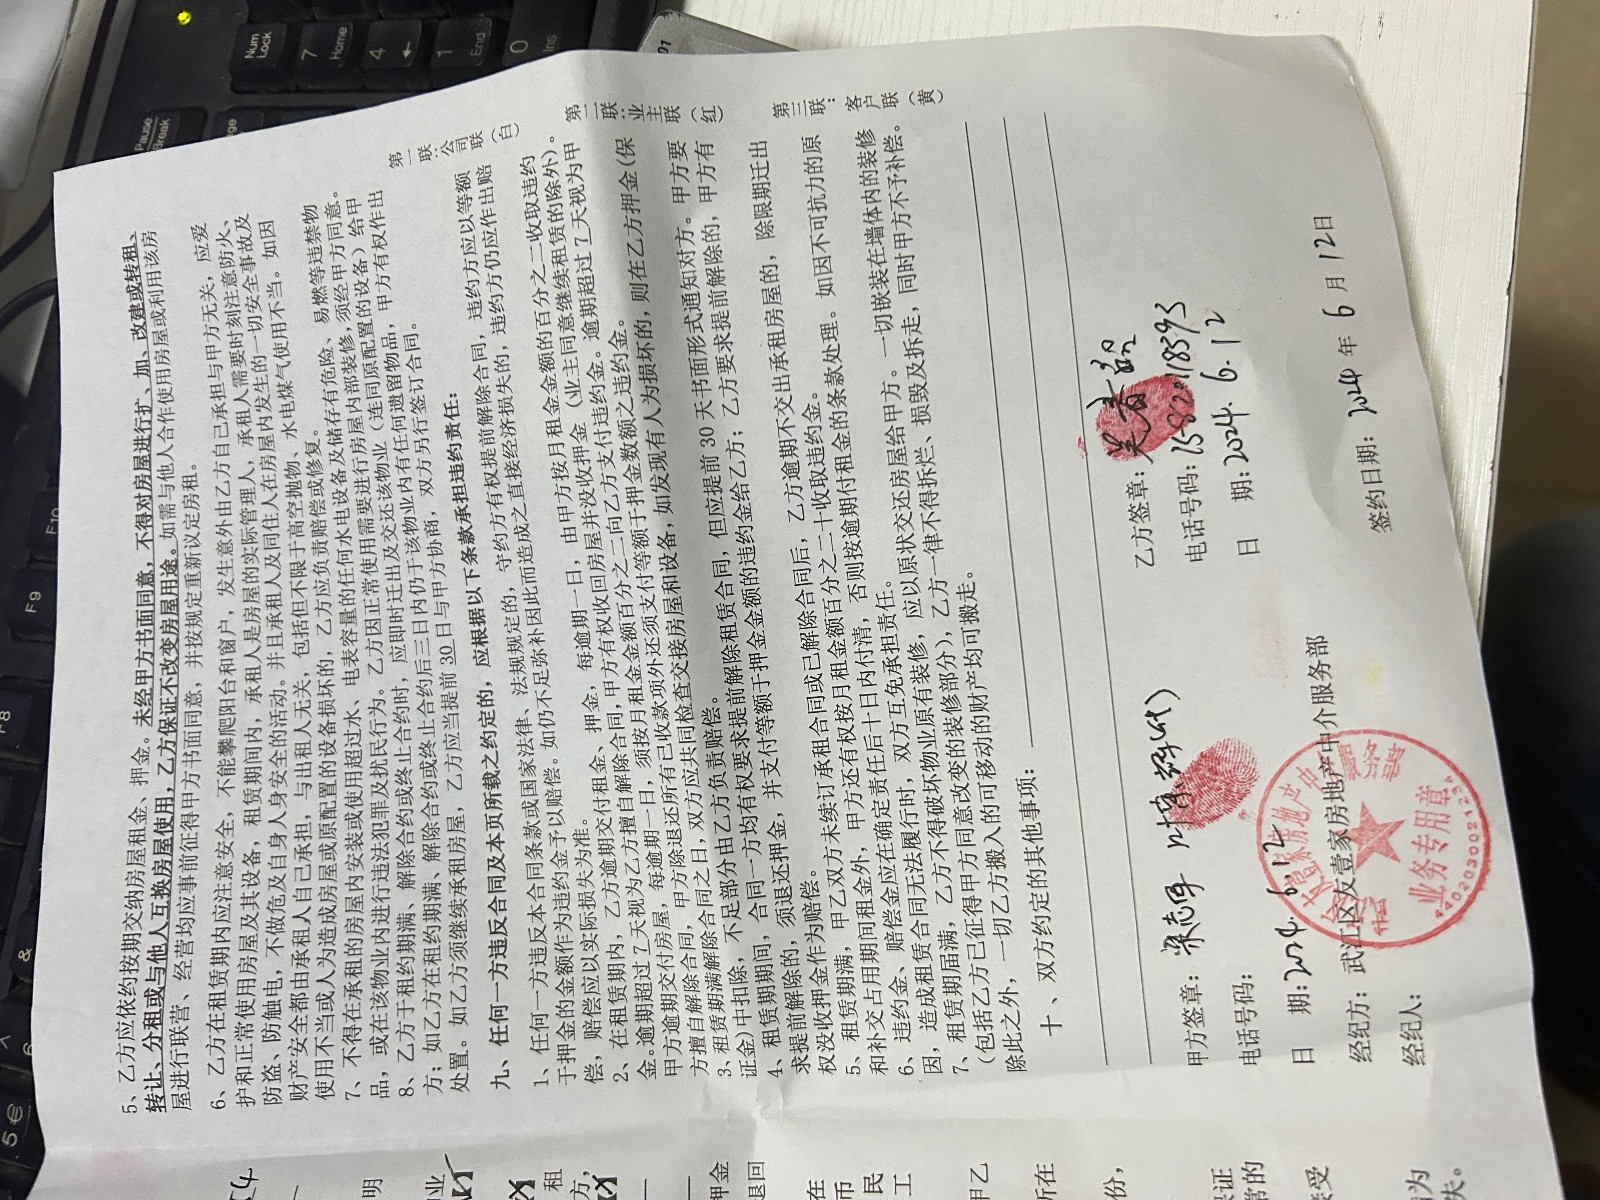 5、乙方应依约按期交纳房屋租金、押金。未经甲方书面同意，不得对房屋进行扩、加、改建或转租、
转让、分租或与他人互换房屋使用，乙方保证不改变房屋用途。如需与他人合作使用房屋或利用该房
屋进行联营、经营均应事前征得甲方书面同意，并按规定重新议定房租。
6、乙方在租赁期内应注意安全，不能攀爬阳台和窗户，发生意外由乙方自己承担与甲方无关，应爱
护和正常使用房屋及其设备，租赁期间内，承租人是房屋的实际管理人，承租人需要时刻注意防火、
防盗、防触电，不做危及自身人身安全的活动。并且承租人及同住人在房屋内发生的一切安全事故及
财产安全都由承租人自己承担，与出租人无关，包括但不限于高空抛物、水电煤气使用不当。如因
使用不当或人为造成房屋或原配置的设备损坏的，乙方应负责赔偿或修复。
7、不得在承租的房屋内安装或使用超过水、电表容量的任何水电设备及储存有危险、易燃等违禁物
品，或在该物业内进行违法犯罪及扰民行为。乙方因正常使用需要进行房屋内部装修，须经甲方同意。
8、乙方于租约期满、解除合约或终止合约时，应即时迁出及交还该物业（连同原配置的设备）给甲
方；如乙方在租约期满、解除合约或终止合约后三日内仍于该物业内有任何遗留物品，甲方有权作出
处置。如乙方须继续承租房屋，乙方应当提前30日与甲方协商，双方另行签订合同。
九、任何一方违反合同及本页所载之约定的，应根据以下条款承担违约责任：
1、任何一方违反本合同条款或国家法律、法规规定的，守约方有权提前解除合同，违约方应以等额
于押金的金额作为违约金予以赔偿。如仍不足弥补因此而造成之直接经济损失的，违约方仍应作出赔
偿，赔偿应以实际损失为准。
2、在租赁期内，乙方逾期交付租金、押金，每逾期一日，由甲方按月租金金额的百分之二收取违约
金。逾期超过7天视为乙方擅自解除合同，甲方有权收回房屋并没收押金（业主同意继续租赁的除外）。
甲方逾期交付房屋，每逾期一日，须按月租金金额百分之二向乙方支付违约金。逾期超过7天视为甲
方擅自解除合同，甲方除退还所有已收款项外还须支付等额于押金数额之违约金。
3、租赁期满解除合同之日，双方应共同检查交接房屋和设备，如发现有人为损坏的，则在乙方押金（保
证金）中扣除，不足部分由乙方负责赔偿。
4、租赁期期间，合同一方均有权要求提前解除租赁合同，但应提前30天书面形式通知对方。甲方要
求提前解除的，须退还押金，并支付等额于押金金额的违约金给乙方；乙方要求提前解除的，甲方有
权没收押金作为赔偿。
5、租赁期满，甲乙双方未续订承租合同或已解除合同后，乙方逾期不交出承租房屋的，除限期迁出
和补交占用期间租金外，甲方还有权按月租金额百分之二十收取违约金。
6、违约金、赔偿金应在确定责任后十日内付清，否则按逾期付租金的条款处理。如因不可抗力的原
因，造成租赁合同无法履行时，双方互免承担责任。
7、租赁期届满，乙方不得破坏物业原有装修，应以原状交还房屋给甲方。一切嵌装在墙体内的装修
（包括乙方已征得甲方同意改变的装修部分），乙方一律不得拆烂、损毁及拆走，同时甲方不予补偿。
除此之外，一切乙方搬入的可移动的财产均可搬走。
十、双方约定的其他事项：
甲方签章：
电话号码：
日 期：2024.6.12
经纪方：武江区友壹家房地产中介服务部
经纪人：
乙方签章：吴春韶
电话号码：
日 期：2024.6.12
签约日期：2024年6月12日
第一联：公司联（白）
第二联：业主联（红）
第三联：客户联（黄）
业务专用章
Num Lock
7 Home
4
1 End
0 Ins
Pause Break
F10
F9
F8